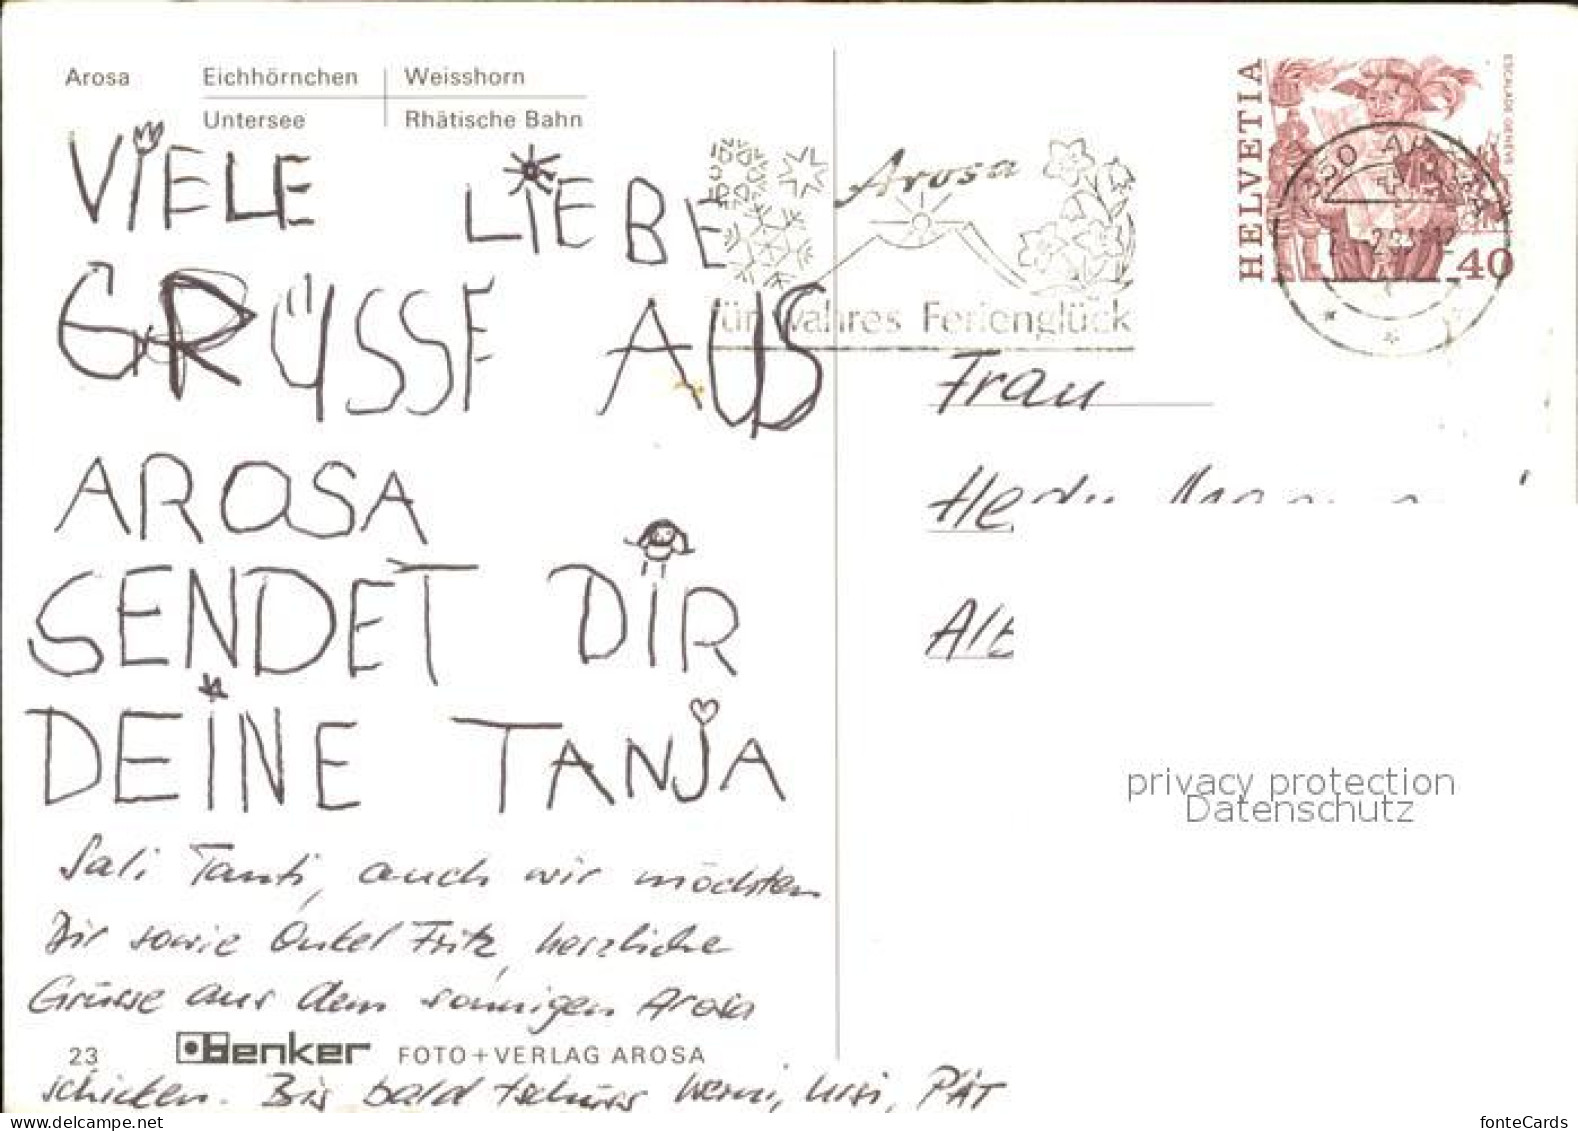 Arosa Eichhörnchen Weisshorn
Untersee Rhätische Bahn
VIELE LIEBE
GRÜSSE AUS
AROSA
SENDET DIR
DEINE TANJA
Sali Tanti, auch wir möchten
Dir sowie Onkel Fritz, herzliche
Grüsse aus dem sonnigen Arosa
23 Benker FOTO+VERLAG AROSA
schicken. Bis bald tschüss Werni, Ursi, PÄT
Arosa
für wahres Ferienglück
HELVETIA
ESCALADE GENEVE
40
Frau
privacy protection
Datenschutz
fonteCards